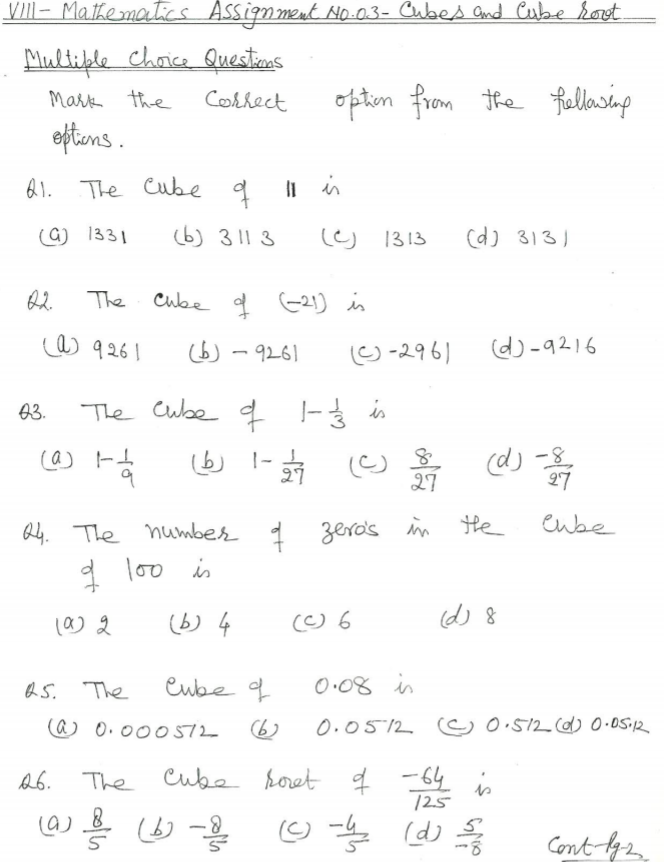 VIII- Mathematics Assignment No.03- Cubes and Cube Root
Multiple Choice Questions
Mark the Correct option from the following
options.
Q1. The Cube of 11 is
(a) 1331 (b) 3113 (c) 1313 (d) 3131
Q2. The Cube of (-21) is
(a) 9261 (b) -9261 (c) -2961 (d) -9216
Q3. The Cube of 1-1/3 is
(a) 1-1/9 (b) 1-1/27 (c) 8/27 (d) -8/27
Q4. The number of zero's in the Cube
of 100 is
(a) 2 (b) 4 (c) 6 (d) 8
Q5. The Cube of 0.08 is
(a) 0.000512 (b) 0.0512 (c) 0.512 (d) 0.0512
Q6. The Cube root of -64/125 is
(a) 8/5 (b) -8/5 (c) -4/5 (d) 5/-8
Cont-Pg-2